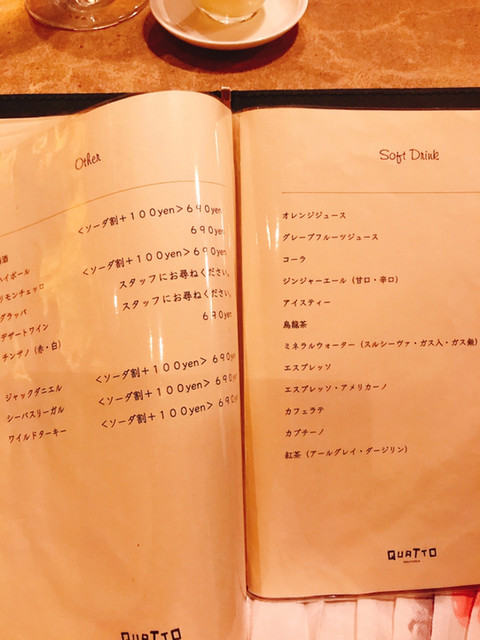 Other
酒 <ソーダ割+100yen> 690yen
ハイボール 690yen
リモンチェッロ <ソーダ割+100yen> 690yen
グラッパ スタッフにお尋ねください。
デザートワイン スタッフにお尋ねください。
チンザノ (赤・白) 690yen
ジャックダニエル <ソーダ割+100yen> 690y
シーバスリーガル <ソーダ割+100yen> 690y
ワイルドターキー <ソーダ割+100yen> 690y
QUATTO
Soft Drink
オレンジジュース
グレープフルーツジュース
コーラ
ジンジャーエール (甘口・辛口)
アイスティー
烏龍茶
ミネラルウォーター (スルシーヴァ・ガス入・ガス無)
エスプレッソ
エスプレッソ・アメリカーノ
カフェラテ
カプチーノ
紅茶 (アールグレイ・ダージリン)
QUATTO